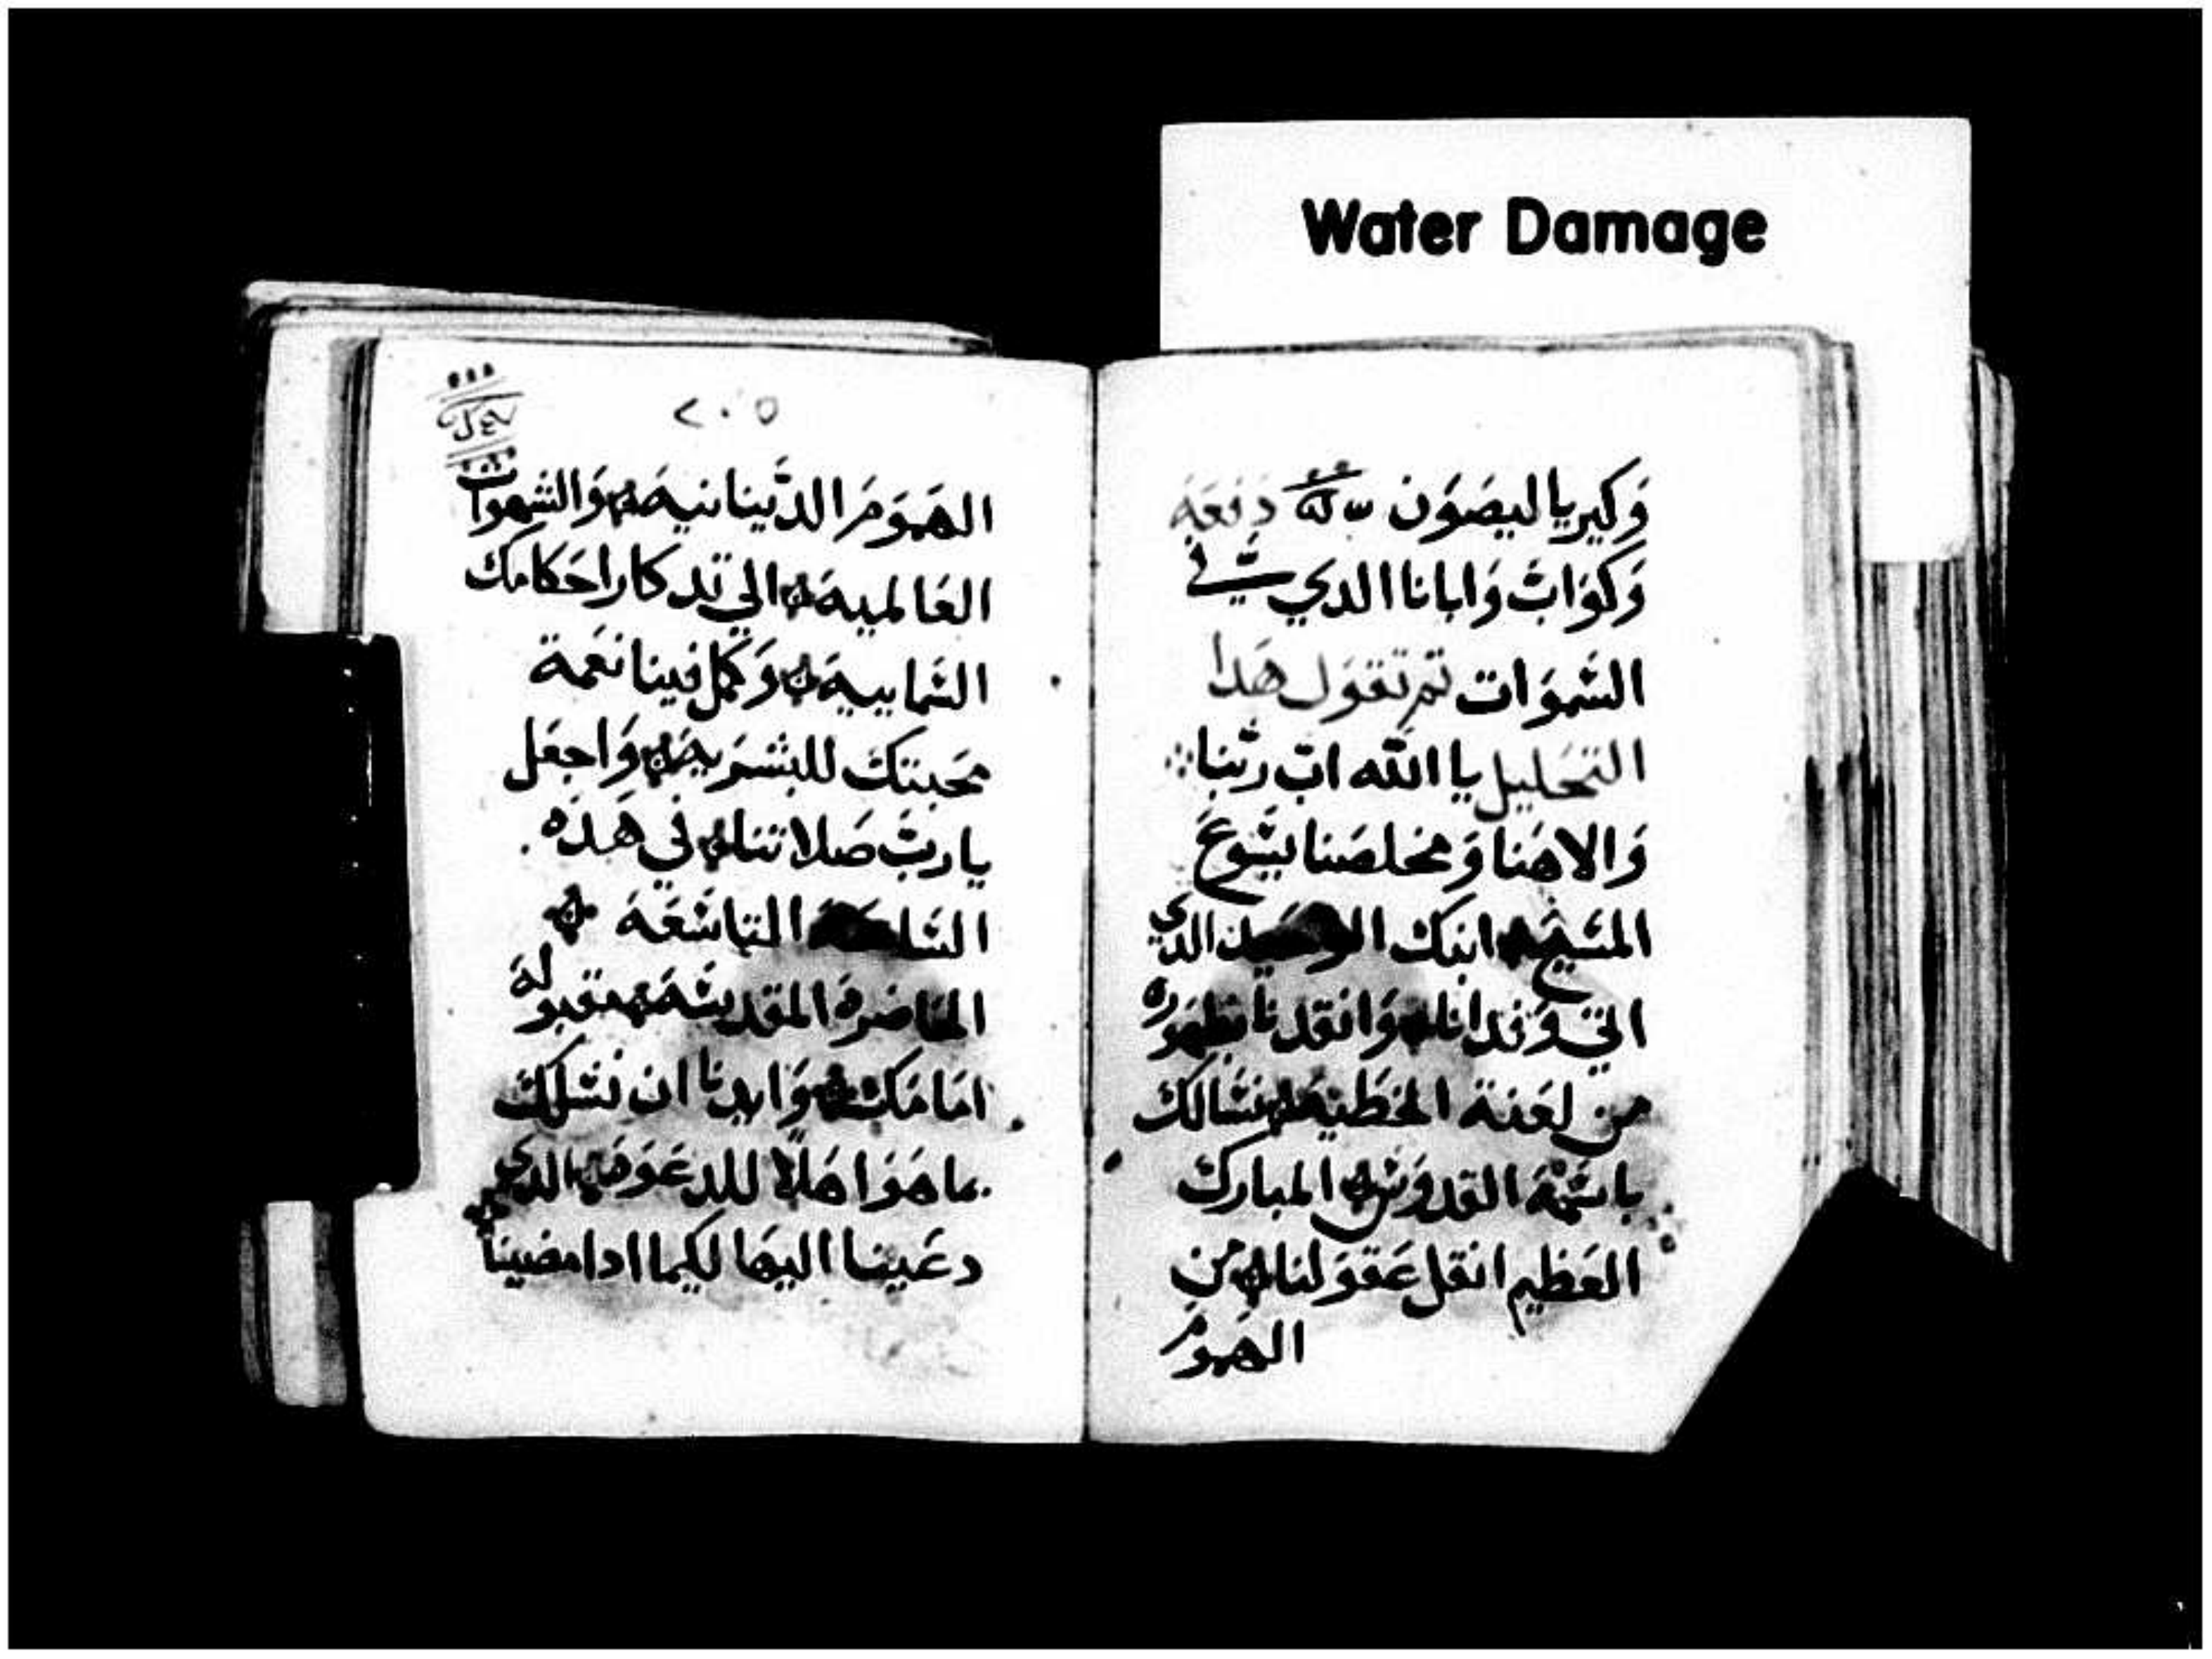 Water Damage
وَكيرياليصَوَن دَفعَه
وَكوَاتَ وَابانا الدي في
السَموَات تم تقوَل هَدا
التحَليل يا الله اب ربنا
وَالاهنا وَ مخلصَنا يسَوعَ
المسَيح ابنك الدي
اتي وَفدانا وَانقدنا بظهَوره
من لعَنة الخطَيه نسَالك
باسَمَه القدوَس المبارك
العَظيم انقل عَقوَلنا من
الهَموَم
٢٠٥
الهَموَمَ الدنيانيه وَالشهوات
العَالميه الي تدكار احَكامك
السَماييه وَكمل فينا نعَمة
محَبتك للبشرَيه وَاجعَل
يا ربَ صَلاتنا في هَده
التاسَعَه
الحَاضره المقدسَه مقبوله
امَامَك وَايدنا ان نسَلك
بما هَوَ اهَلا للدعَوَه الدي
دعَينا اليهَا لكيما ادا مضينا